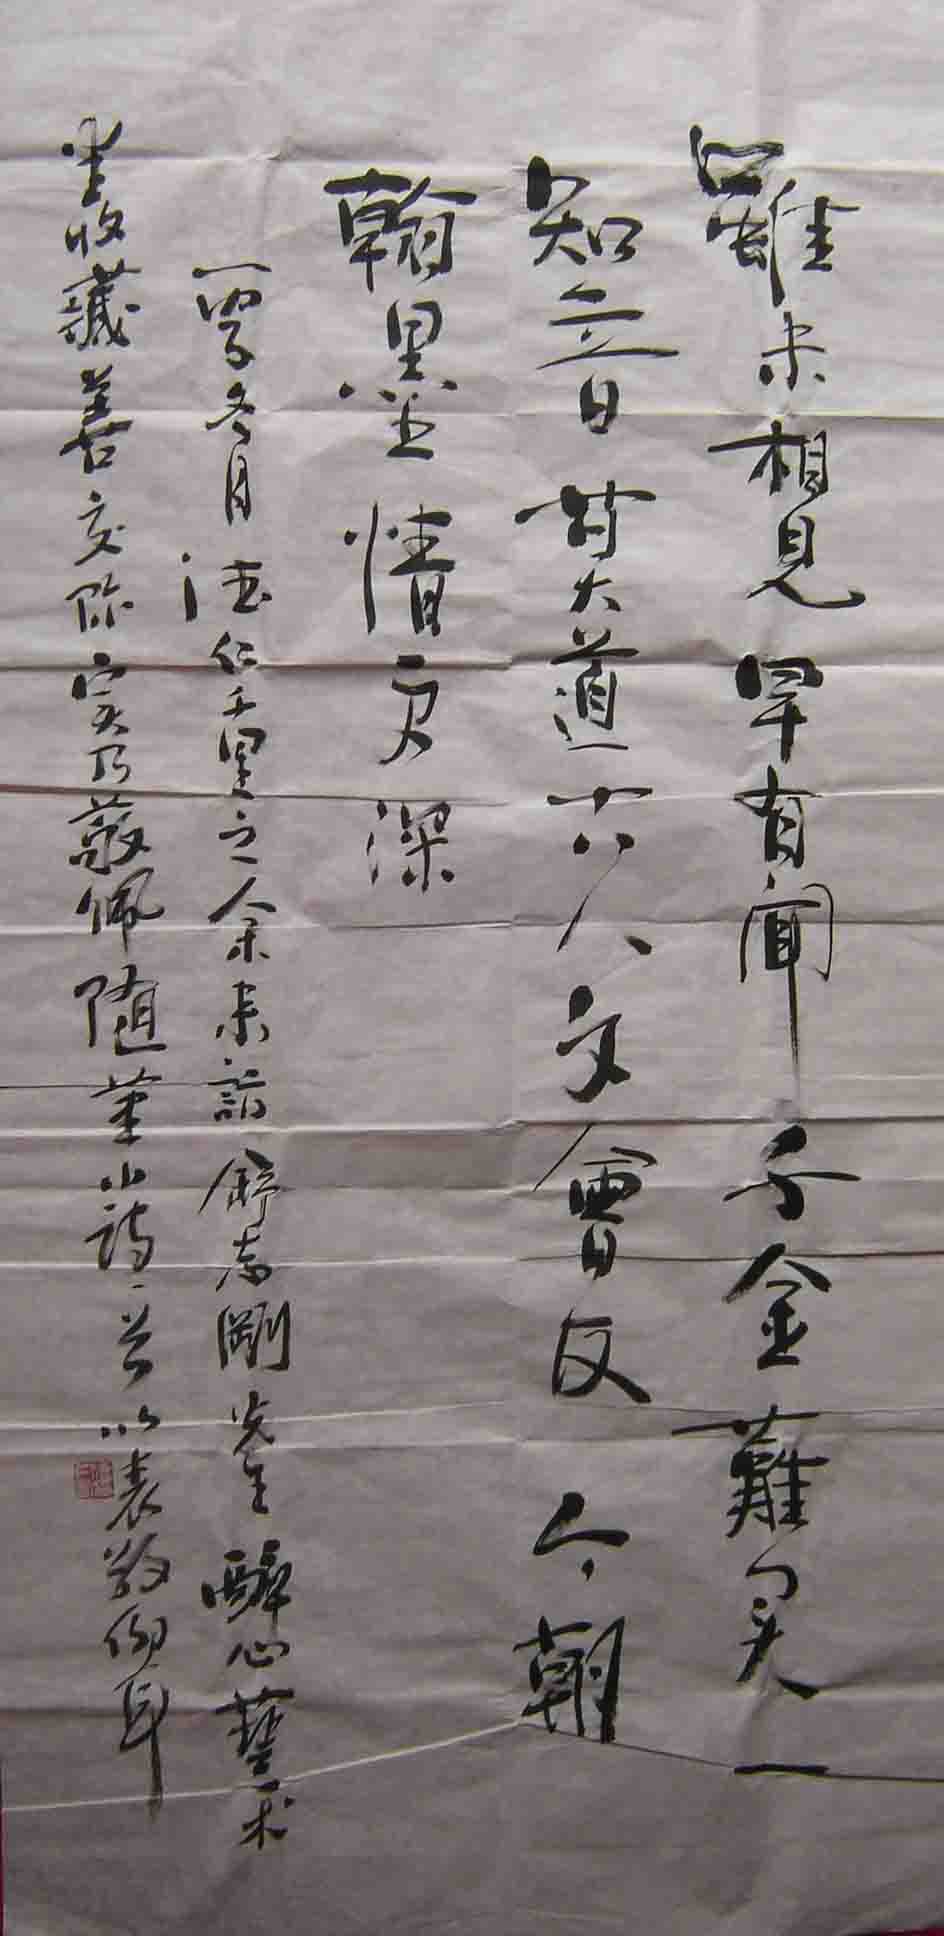 雖未相見早有聞千金難覓一
知音日苛大道六八文會友今朝
翰墨情更深
一零冬月法仁千里之余来訪舒志剛先生醉心藝术
坐收藏善交际实乃敬佩随筆小詩一首以表敬仰耳